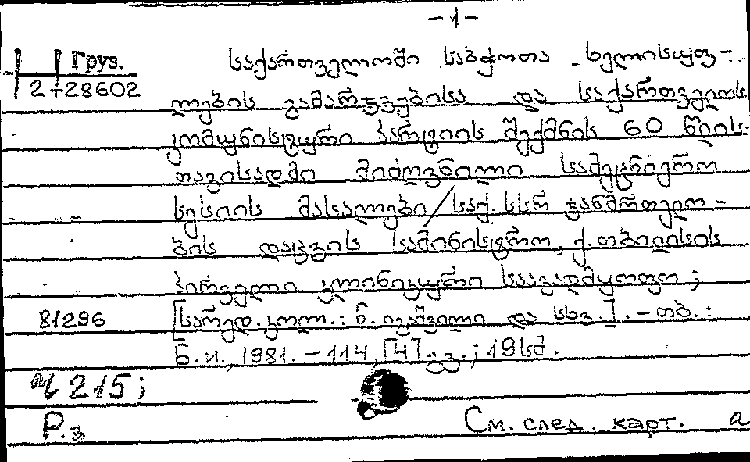 -1-
Груз.
საქართველოში საბჭოთა ხელისუფ-
2-28602
ლების გამარჯვებისა და საქართველოს
კომუნისტური პარტიის შექმნის 60 წლის-
თავისადმი მიძღვნილი სამეცნიერო
სესიის მასალები / საქ. სსრ ჯანმრთელო-
ბის დაცვის სამინისტრო, ქ. თბილისის
პირველი კლინიკური საავადმყოფო ;
81296
[სარედ. კოლ.: ნ. იაშვილი და სხვ.]. - თბ. :
ბ. ი., 1981. - 114, [4] გვ. ; 19 სმ.
Ч 215;
Р. з
См. след. карт. а